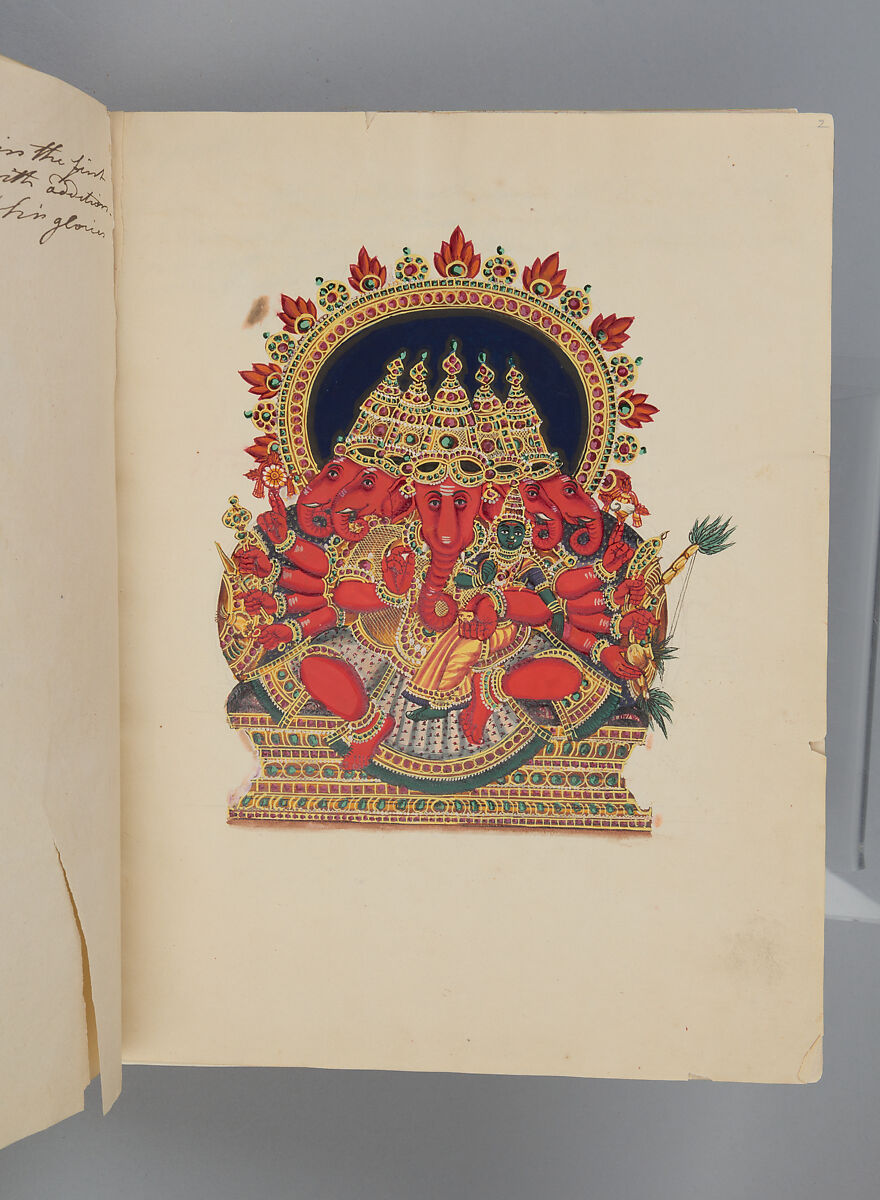 the first
with addition
his glories
2